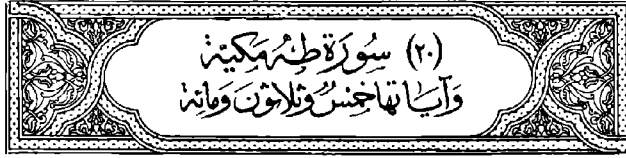 (٢٠) سُورَة طٰهٰ مَكيّة
وَآيَاتهَا خمْسٌ وَثلَاثونَ وَمائة